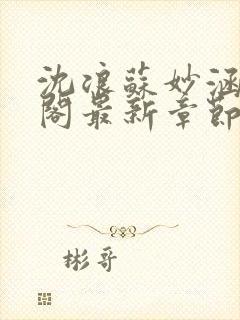 沈浪蘇妙涵
閣最新章節
彬哥